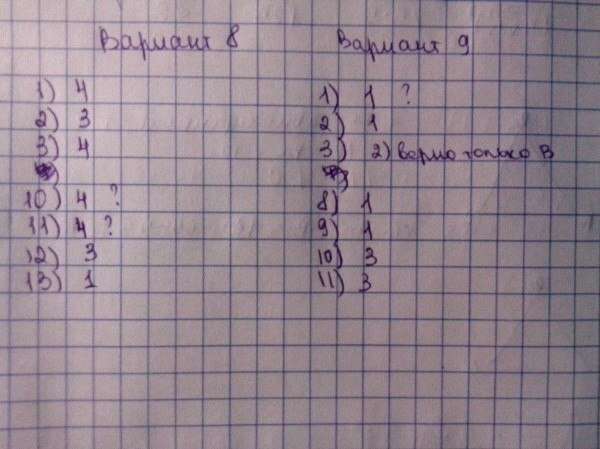 Вариант 8
1) 4
2) 3
3) 4
10) 4 ?
11) 4 ?
12) 3
13) 1
Вариант 9
1) 1 ?
2) 1
3) 2) верно только В
8) 1
9) 1
10) 3
11) 3